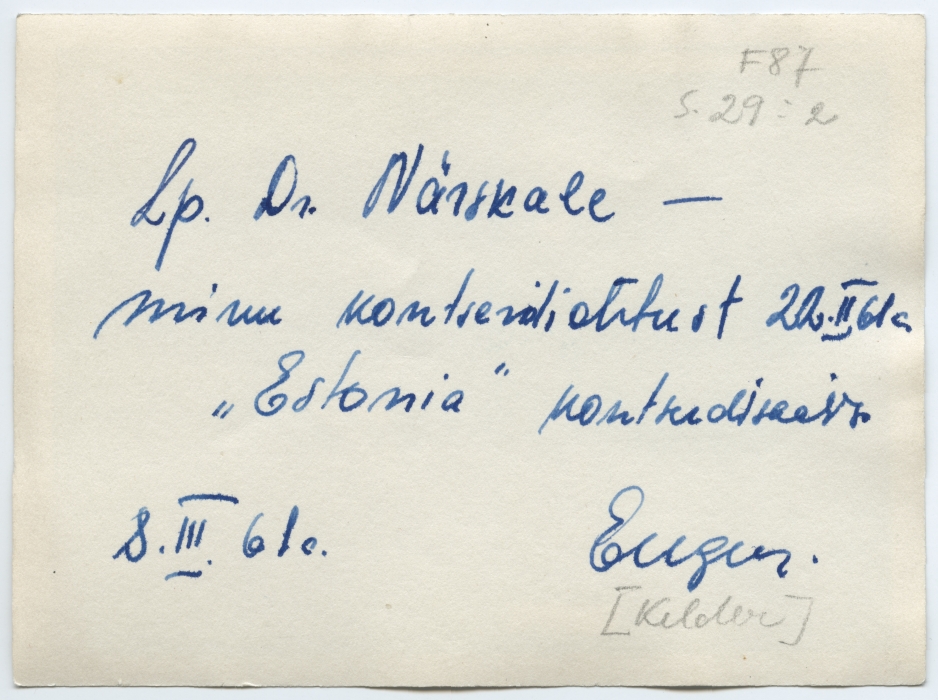 F87
S. 29:2
Lp. Dr. Närskale —
minu kontserdiõhtust 22.II 61a
„Estonia" kontserdisaalis.
8.III 61a.
Eugen.
[Kelder]